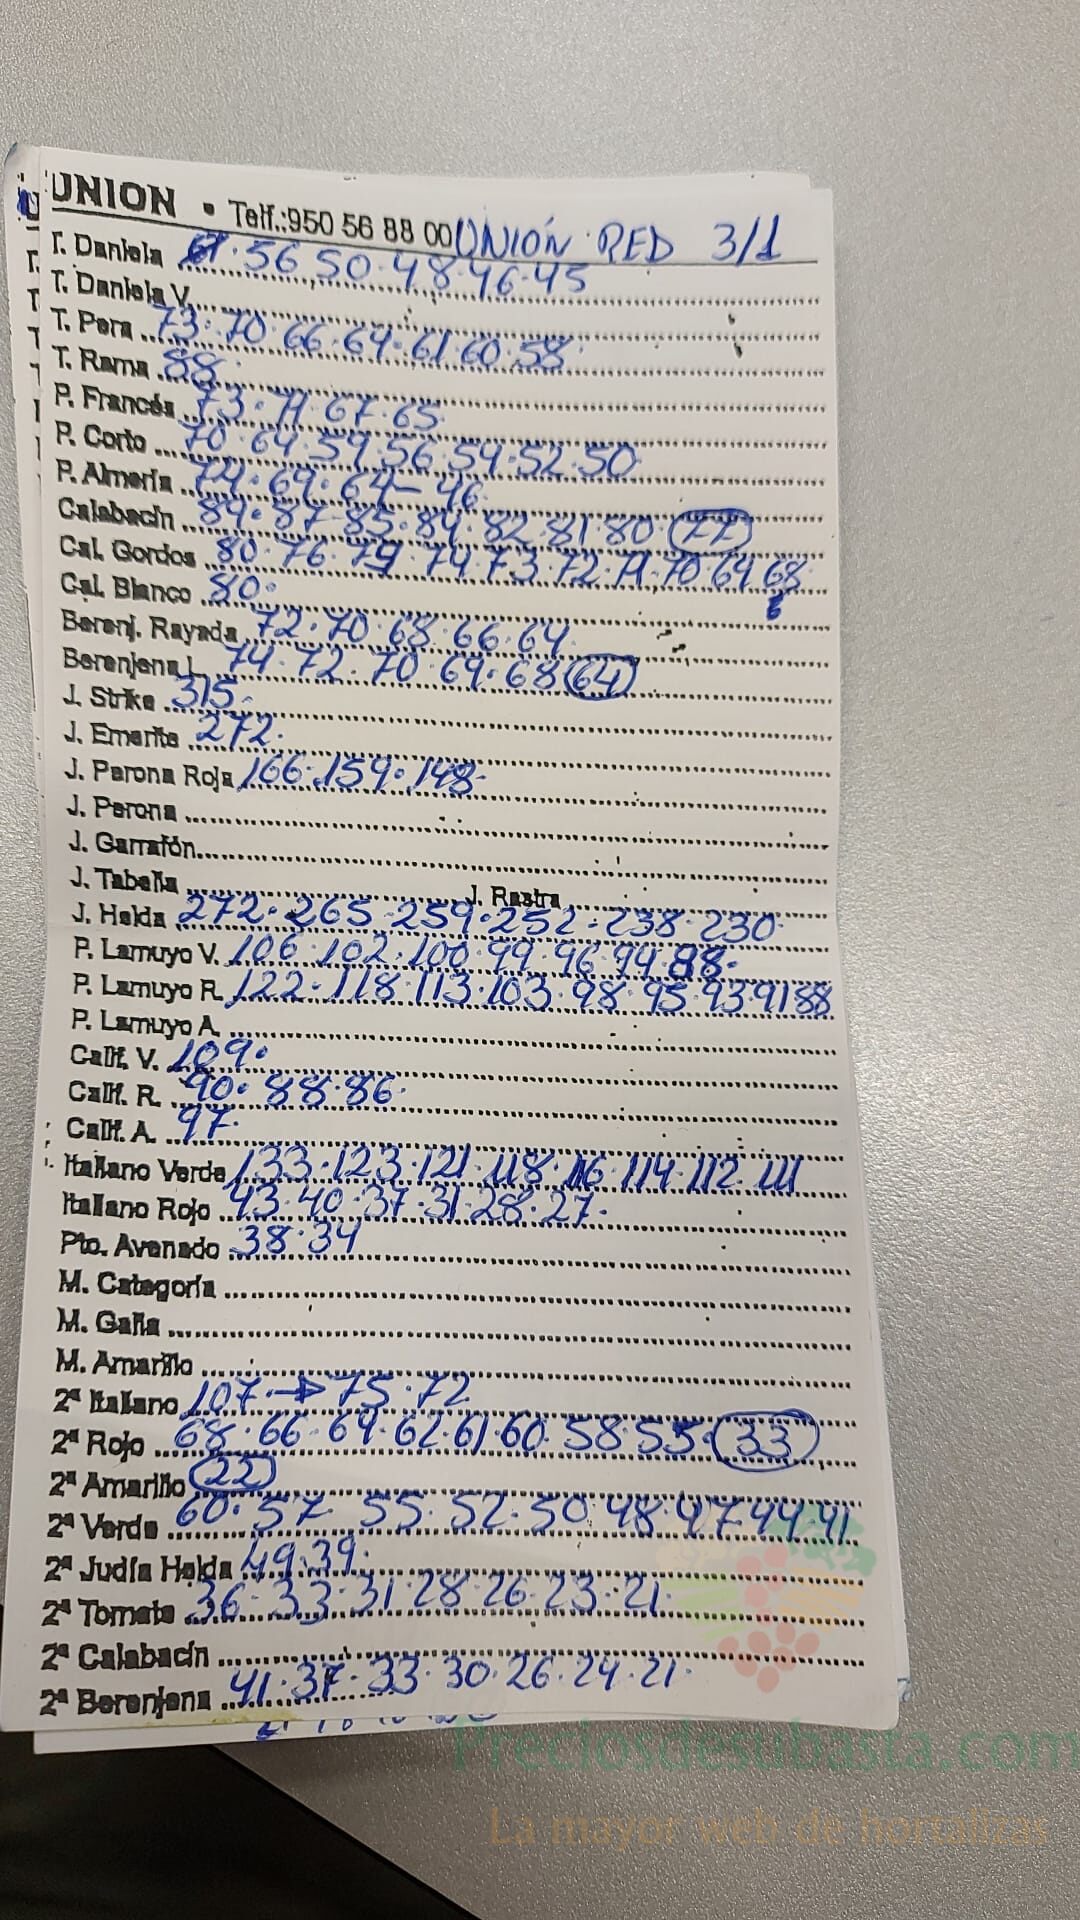 UNION • Telf.:950 56 88 00 UNIÓN RED 3/1
T. Daniela 61·56 50·48·46·45
T. Daniela V.
T. Pera 73·70·66·64·61·60·58·
T. Rama 88·
P. Francés 73·71·67·65·
P. Corto 70·64·59·56·54·52·50
P. Almería 74·69·64–46·
Calabacín 89·87·85·84·82·81·80 (77)
Cal. Gordos 80·76·79·74·73·72·71·70·69 68
Cal. Blanco 80·
Berenj. Rayada 72·70·68·66·64·
Berenjena L. 74·72·70·69·68 (64)
J. Strike 315·
J. Emerite 272·
J. Perona Roja 166·159·148·
J. Perona
J. Garrafón
J. Tabella J. Rastra
J. Helda 272·265·259·252·238·230·
P. Lamuyo V. 106·102·100·99·96·94·88·
P. Lamuyo R. 122·118·113·103·98·95·93·91 88
P. Lamuyo A.
Calif. V. 109·
Calif. R. 90·88·86·
Calif. A. 97·
Italiano Verde 133·123·121·118·116·114·112·111
Italiano Rojo 43·40·37·31·28·27·
Pto. Avenado 38·34
M. Categoría
M. Galia
M. Amarillo
2ª Italiano 107·→75·72
2ª Rojo 68·66·64·62·61·60·58·55·(33)
2ª Amarillo (22)
2ª Verde 60·57·55·52·50·48·47·44·41
2ª Judía Helda 49·39·
2ª Tomate 36·33·31·28·26·23·21·
2ª Calabacín
2ª Berenjena 41·37·33·30·26·24·21·
Preciosdesubasta.com
La mayor web de hortalizas